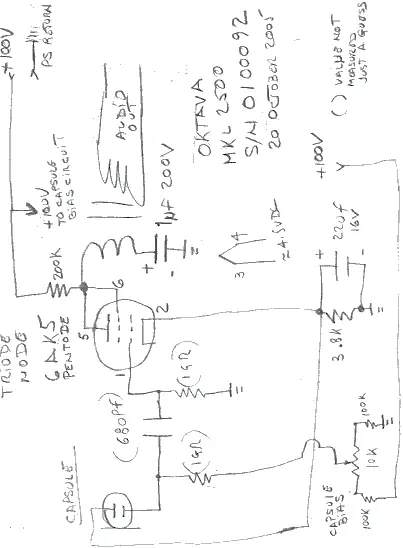 +100V
PS RETURN
+100V
TO CAPSULE
BIAS CIRCUIT
AUDIO
OUT
OKTAVA
MKL 2500
S/N 0100092
20 OCTOBER 2005
( ) VALUE NOT
MEASURED
JUST A GUESS
TRIODE
MODE
6AK5
PENTODE
200K
+
-
1µF 200V
3
4
≈4.5VDC
+100V
5
6
1
2
+
-
22uf
16V
3.8K
(680Pf)
(1GΩ)
(1GΩ)
CAPSULE
CAPSULE
BIAS
100K
10K
100K